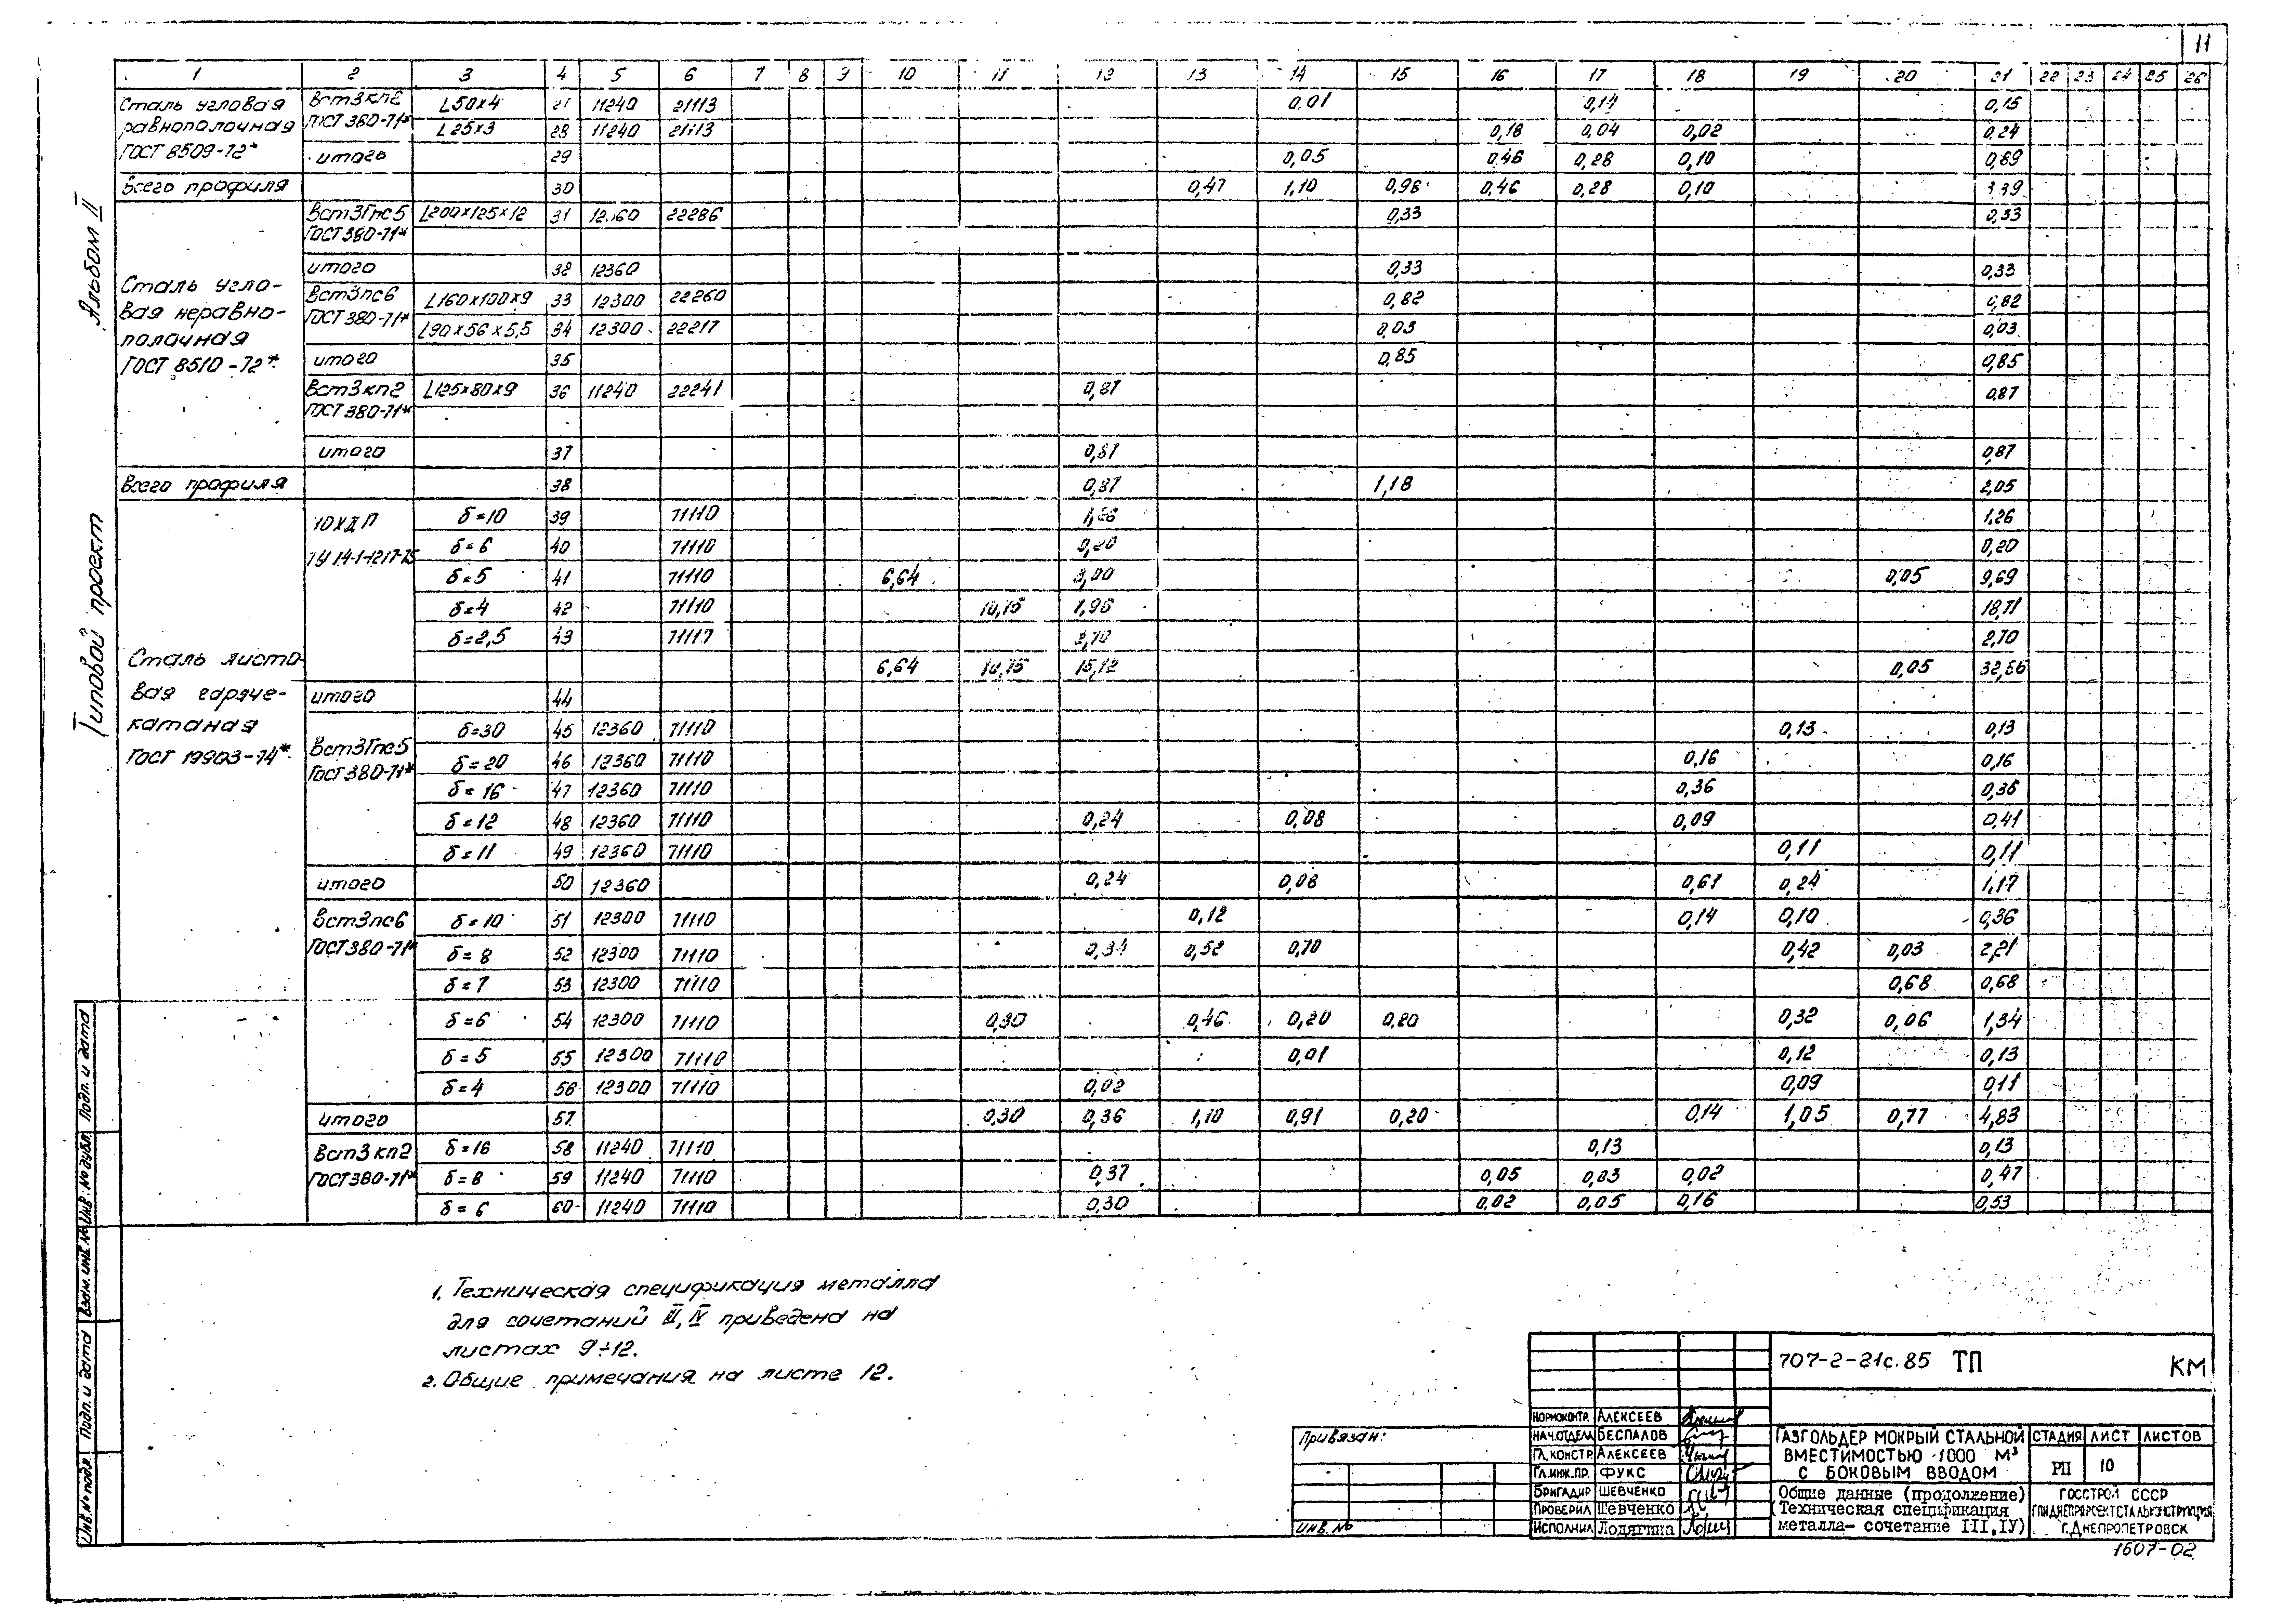 11
1 2 3 4 5 6 7 8 9 10 11 12 13 14 15 16 17 18 19 20 21 22 23 24 25 26
Сталь угловая равнополочная ГОСТ 8509-72*
Вст3кп2 ГОСТ 380-71*
L50x4 11240 21113 0,01 0,14 0,15
L25x3 28 11240 21113 0,18 0,04 0,02 0,24
итого 29 0,05 0,46 0,28 0,10 0,89
Всего профиля 30 0,47 1,10 0,98 0,46 0,28 0,10 3,39
Сталь угло-
вая неравно-
полочная
ГОСТ 8510-72*
Вст3Гпс5 ГОСТ 380-71*
L200x125x12 31 22286 0,33 0,33
итого 32 12360 0,33 0,33
Вст3пс6 ГОСТ 380-71*
L160x100x9 33 12300 22260 0,82 0,82
L90x56x5,5 34 12300 22217 0,03 0,03
итого 35 0,85 0,85
Вст3кп2 ГОСТ 380-71*
L125x80x9 36 11240 22241 0,87 0,87
итого 37 0,87 0,87
Всего профиля 38 0,87 1,18 2,05
Сталь листо-
вая горяче-
катаная
ГОСТ 19903-74*
10ХДП
ТУ 14-1-1217-75
δ=10 39 71110 1,26 1,26
δ=6 40 71110 0,20 0,20
δ=5 41 71110 6,64 3,00 0,05 9,69
δ=4 42 71110 1,96 18,71
δ=2,5 43 71117 2,70
6,64 15,12 0,05 32,56
итого 44
Вст3Гпс5 ГОСТ 380-71*
δ=30 45 12360 71110 0,13 0,13
δ=20 46 12360 71110 0,16 0,16
δ=16 47 12360 71110 0,36 0,36
δ=12 48 12360 71110 0,24 0,08 0,09 0,41
δ=11 49 12360 71110 0,11 0,11
итого 50 12360 0,24 0,08 0,61 0,24 1,17
Вст3пс6
ГОСТ 380-71*
δ=10 51 12300 71110 0,12 0,14 0,10 0,36
δ=8 52 12300 71110 0,34 0,52 0,70 0,42 0,03 2,21
δ=7 53 12300 71110 0,68 0,68
δ=6 54 12300 71110 0,30 0,46 0,20 0,20 0,32 0,06 1,34
δ=5 55 12300 71110 0,01 0,12 0,13
δ=4 56 12300 71110 0,02 0,09 0,11
итого 57 0,30 0,36 1,10 0,91 0,20 0,14 1,05 0,77 4,83
Вст3кп2
ГОСТ 380-71*
δ=16 58 11240 71110 0,13 0,13
δ=8 59 11240 71110 0,37 0,05 0,03 0,02 0,47
δ=6 60 11240 71110 0,30 0,02 0,05 0,16 0,53
1. Техническая спецификация металла
для сочетаний III, IV приведена на
листах 9÷12.
2. Общие примечания на листе 12.
Типовой проект Альбом II
Инв.№ подл. Подп. и дата Взам. инв.№ Инв.№ дубл. Подп. и дата
Привязан:
Инв.№
707-2-21с.85 ТП КМ
Нормоконтр. Алексеев
Нач.отдела Беспалов
Гл.констр. Алексеев
Гл.инж.пр. Фукс
Бригадир Шевченко
Проверил Шевченко
Исполнил Лодягина
ГАЗГОЛЬДЕР МОКРЫЙ СТАЛЬНОЙ
ВМЕСТИМОСТЬЮ 1000 М³
С БОКОВЫМ ВВОДОМ
СТАДИЯ ЛИСТ ЛИСТОВ
РП 10
Общие данные (продолжение)
(Техническая спецификация
металла- сочетание III,IУ)
ГОССТРОЙ СССР
Г.ДНЕПРОПЕТРОВСК
1607-02